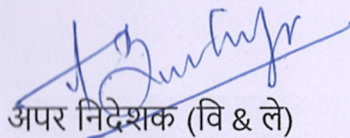 अपर निदेशक (वि & ले)